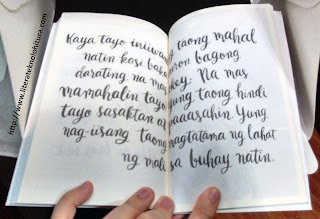 Kaya tayo iniiwan taong mahal
natin kasi baka meron bagong
darating na mas okey. Na mas
mamahalin tayo yung taong hindi
tayo sasaktan at paaasahin. Yung
nag-iisang taong nagtatama ng lahat
ng mali sa buhay natin.
http://www.literateknolohitura.com